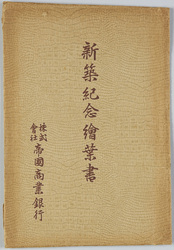 新築紀念繪葉書
株式會社 帝國商業銀行